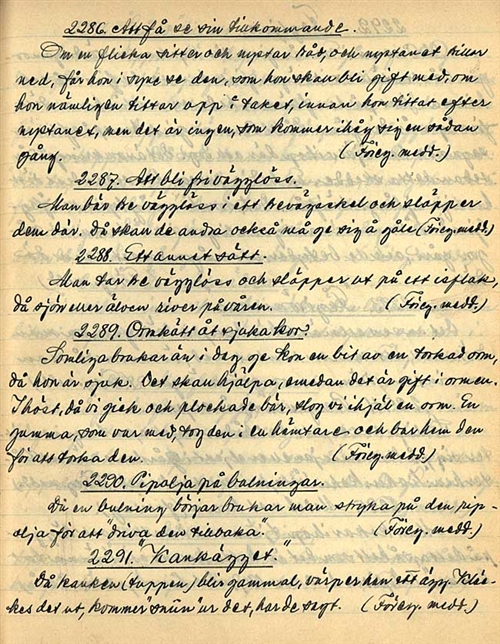 2286. Att få se sin tillkommande.
Om en flicka sitter och nystar tråd, och nystanet trillar
ned, får hon i syne se den, som hon skall bli gift med, om
hon nämligen tittar opp i taket, innan hon tittar efter
nystanet, men det är ingen, som kommer ihåg sig en sådan
gång. (Föreg. medd.)
2287. Att bli fri vägglöss.
Man bär tre vägglöss i ett och släpper
dem där. Då skall de andra också ge sig å gåle (Föreg. medd.)
2288. Ett annat sätt.
Man tar tre vägglöss och släpper ut på ett isflak,
då sjön eller älven river på våren. (Föreg. medd.)
2289. Ormkått åt sjuka kor.
Somliga brukar än i dag ge kon en bit av en torkad orm,
då hon är sjuk. Det skall hjälpa, emedan det är gift i ormen.
I höst, då vi gick och plockade bär, slog vi ihjäl en orm. En
gumma, som var med, tog den i en hämtare och bar hem den
för att torka den. (Föreg. medd.)
2290. Pipolja på bulningar.
Då en bulning börjar brukar man stryka på den pip-
olja för att "driva den tillbaka". (Föreg. medd.)
2291. "Kankägget."
Då kanken (tuppen) blir gammal, värper han ett ägg. Kläc-
kes det ut, kommer "snūn" ur det, har de sagt. (Föreg. medd.)